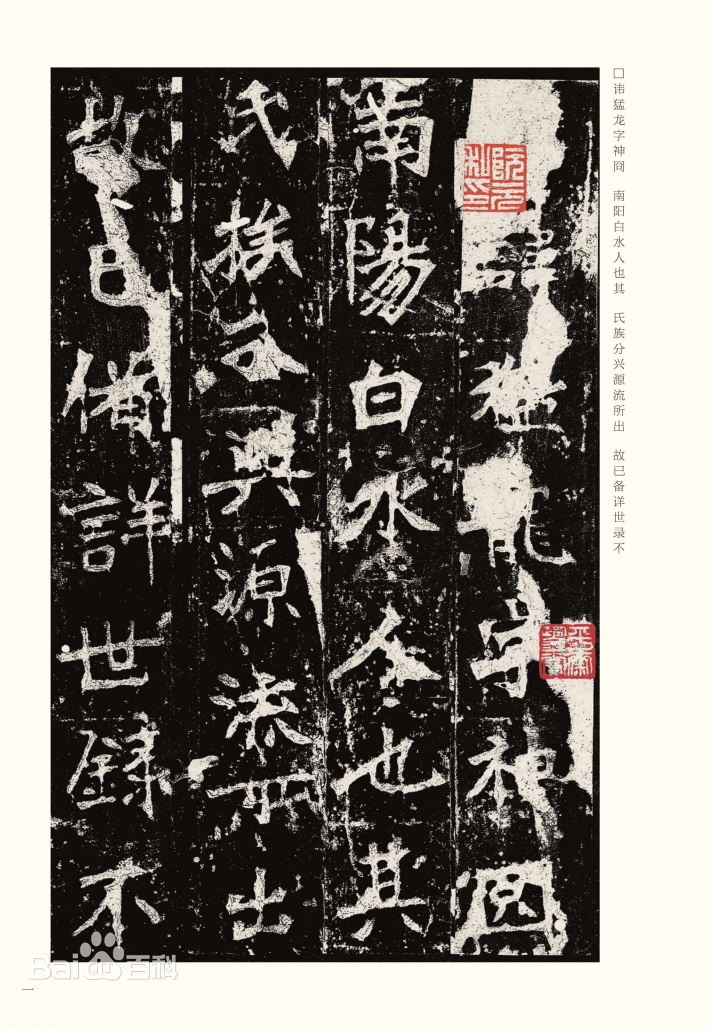 諱猛龍字神冏
南陽白水人也其
氏族分興源流所出
故已備詳世録不
□讳猛龙字神冏 南阳白水人也其 氏族分兴源流所出 故已备详世录不
阮元私印
Bai百科
一